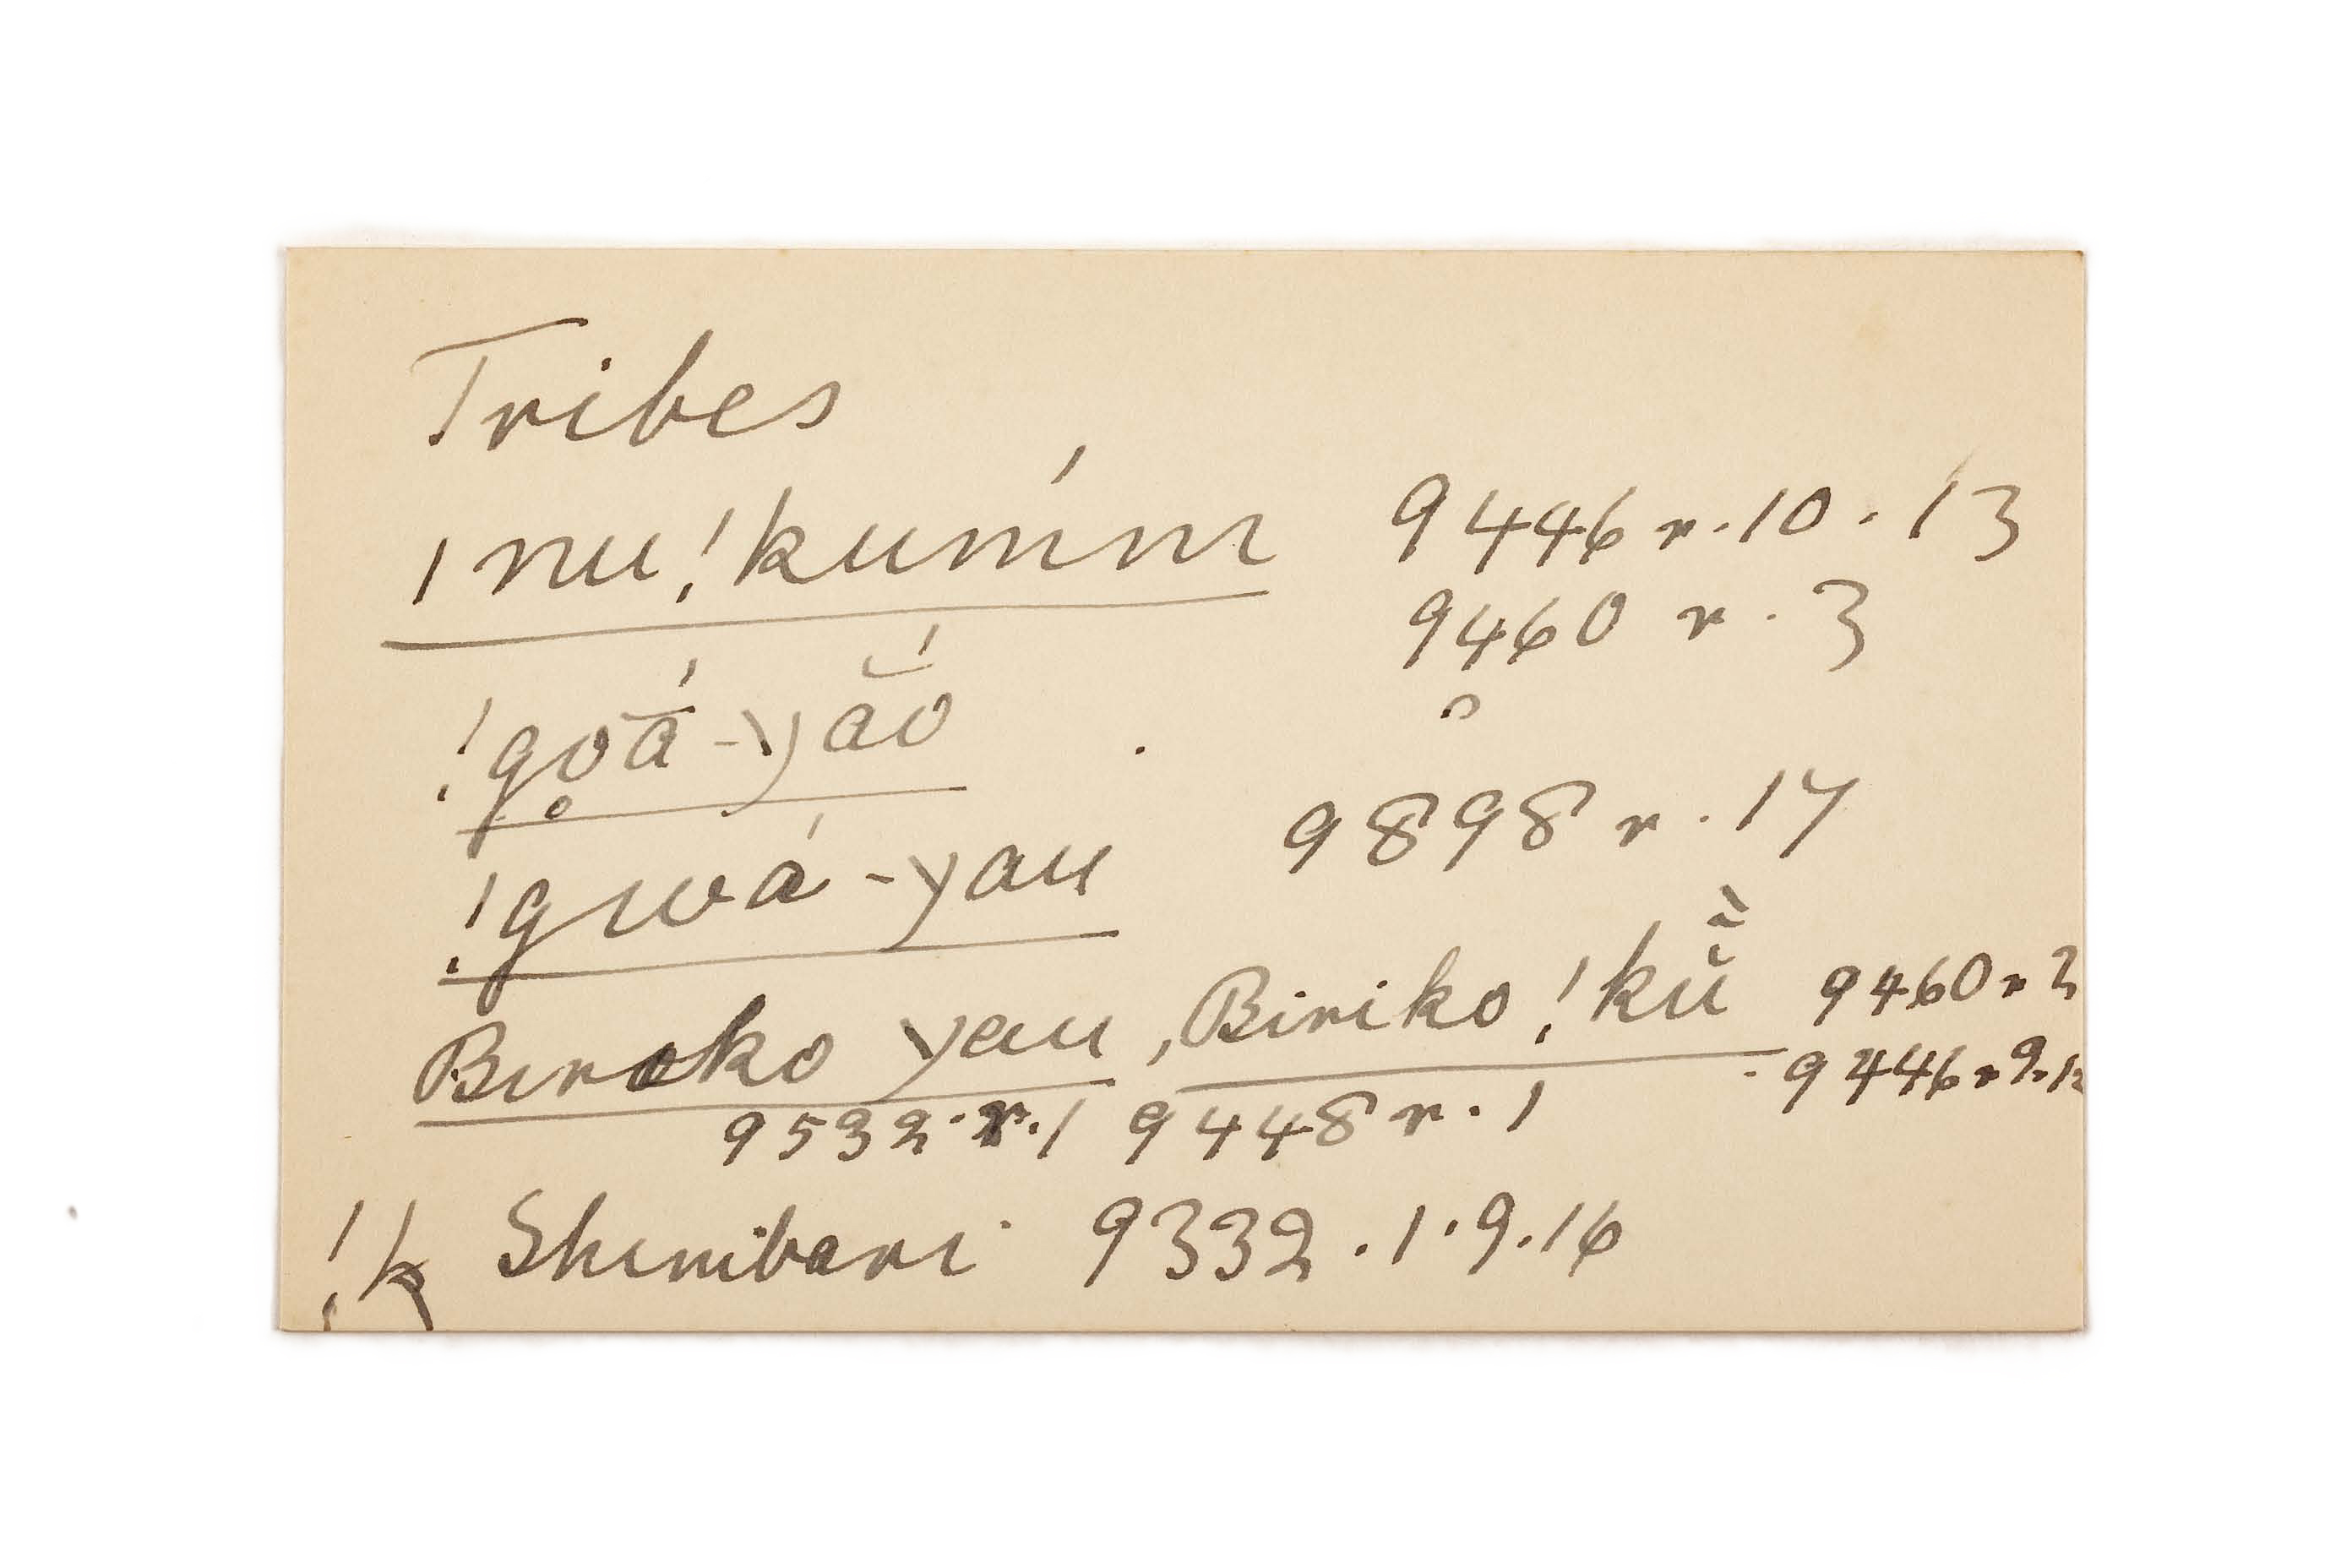 Tribes
ǀnu!kumḿ 9446 r. 10. 13
9460 r. 3
!go̥ā́-yăó
!gwá-yau 9898 r. 17
Biroko yau, Biriko !kṵ̀ 9460 r 3
9532. r. 1 9448 r. 1 9446 r 9.
!k Shinibari 9332. 1. 9. 16